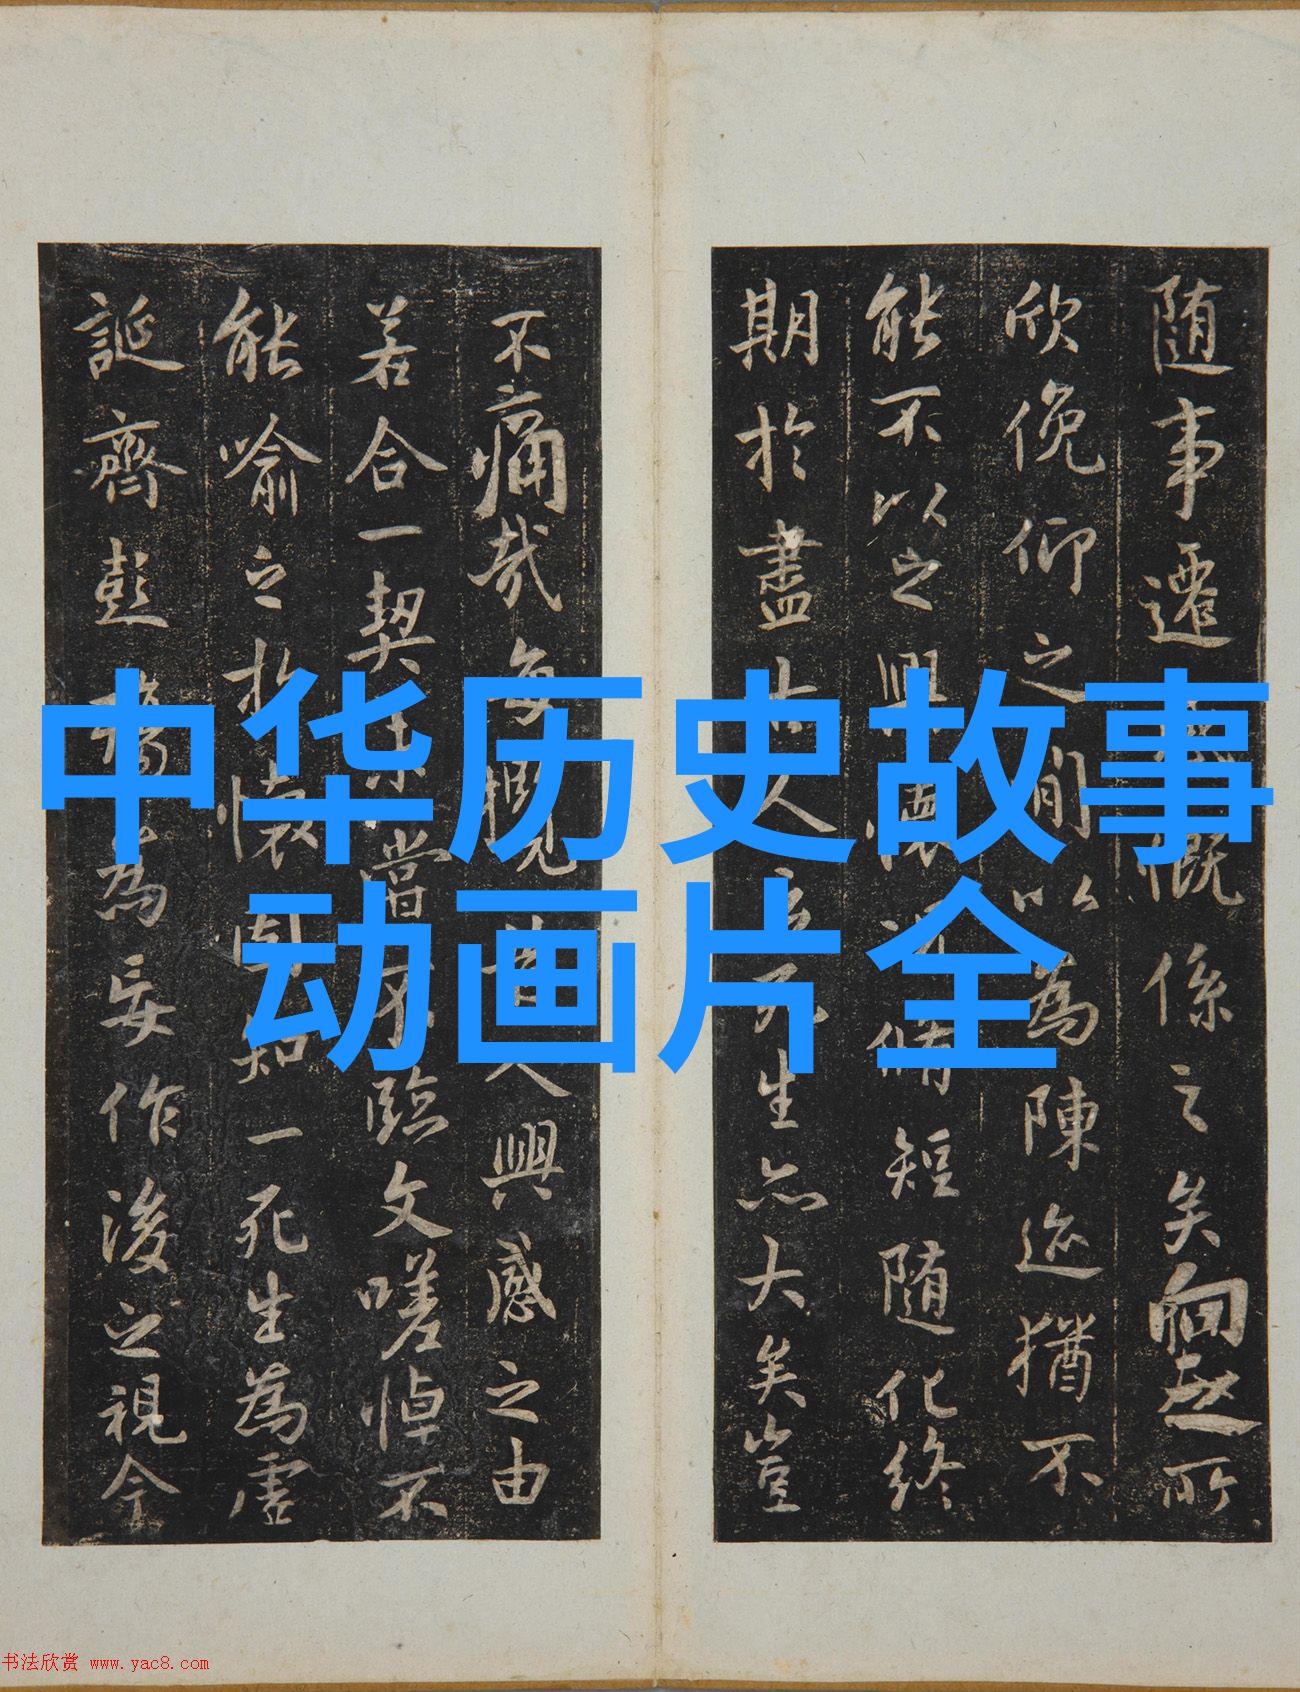 中华历史故事
动画片全
随事遷感慨係之矣向之所
欣俛仰之閒以為陳迹猶不
能不以之興懷況脩短隨化終
期於盡古人云死生亦大矣豈
不痛哉每攬昔人興感之由
若合一契未嘗不臨文嗟悼不
能喻之於懷固知一死生為虛
誕齊彭殤為妄作後之視今
书法欣赏 www.yac8.com